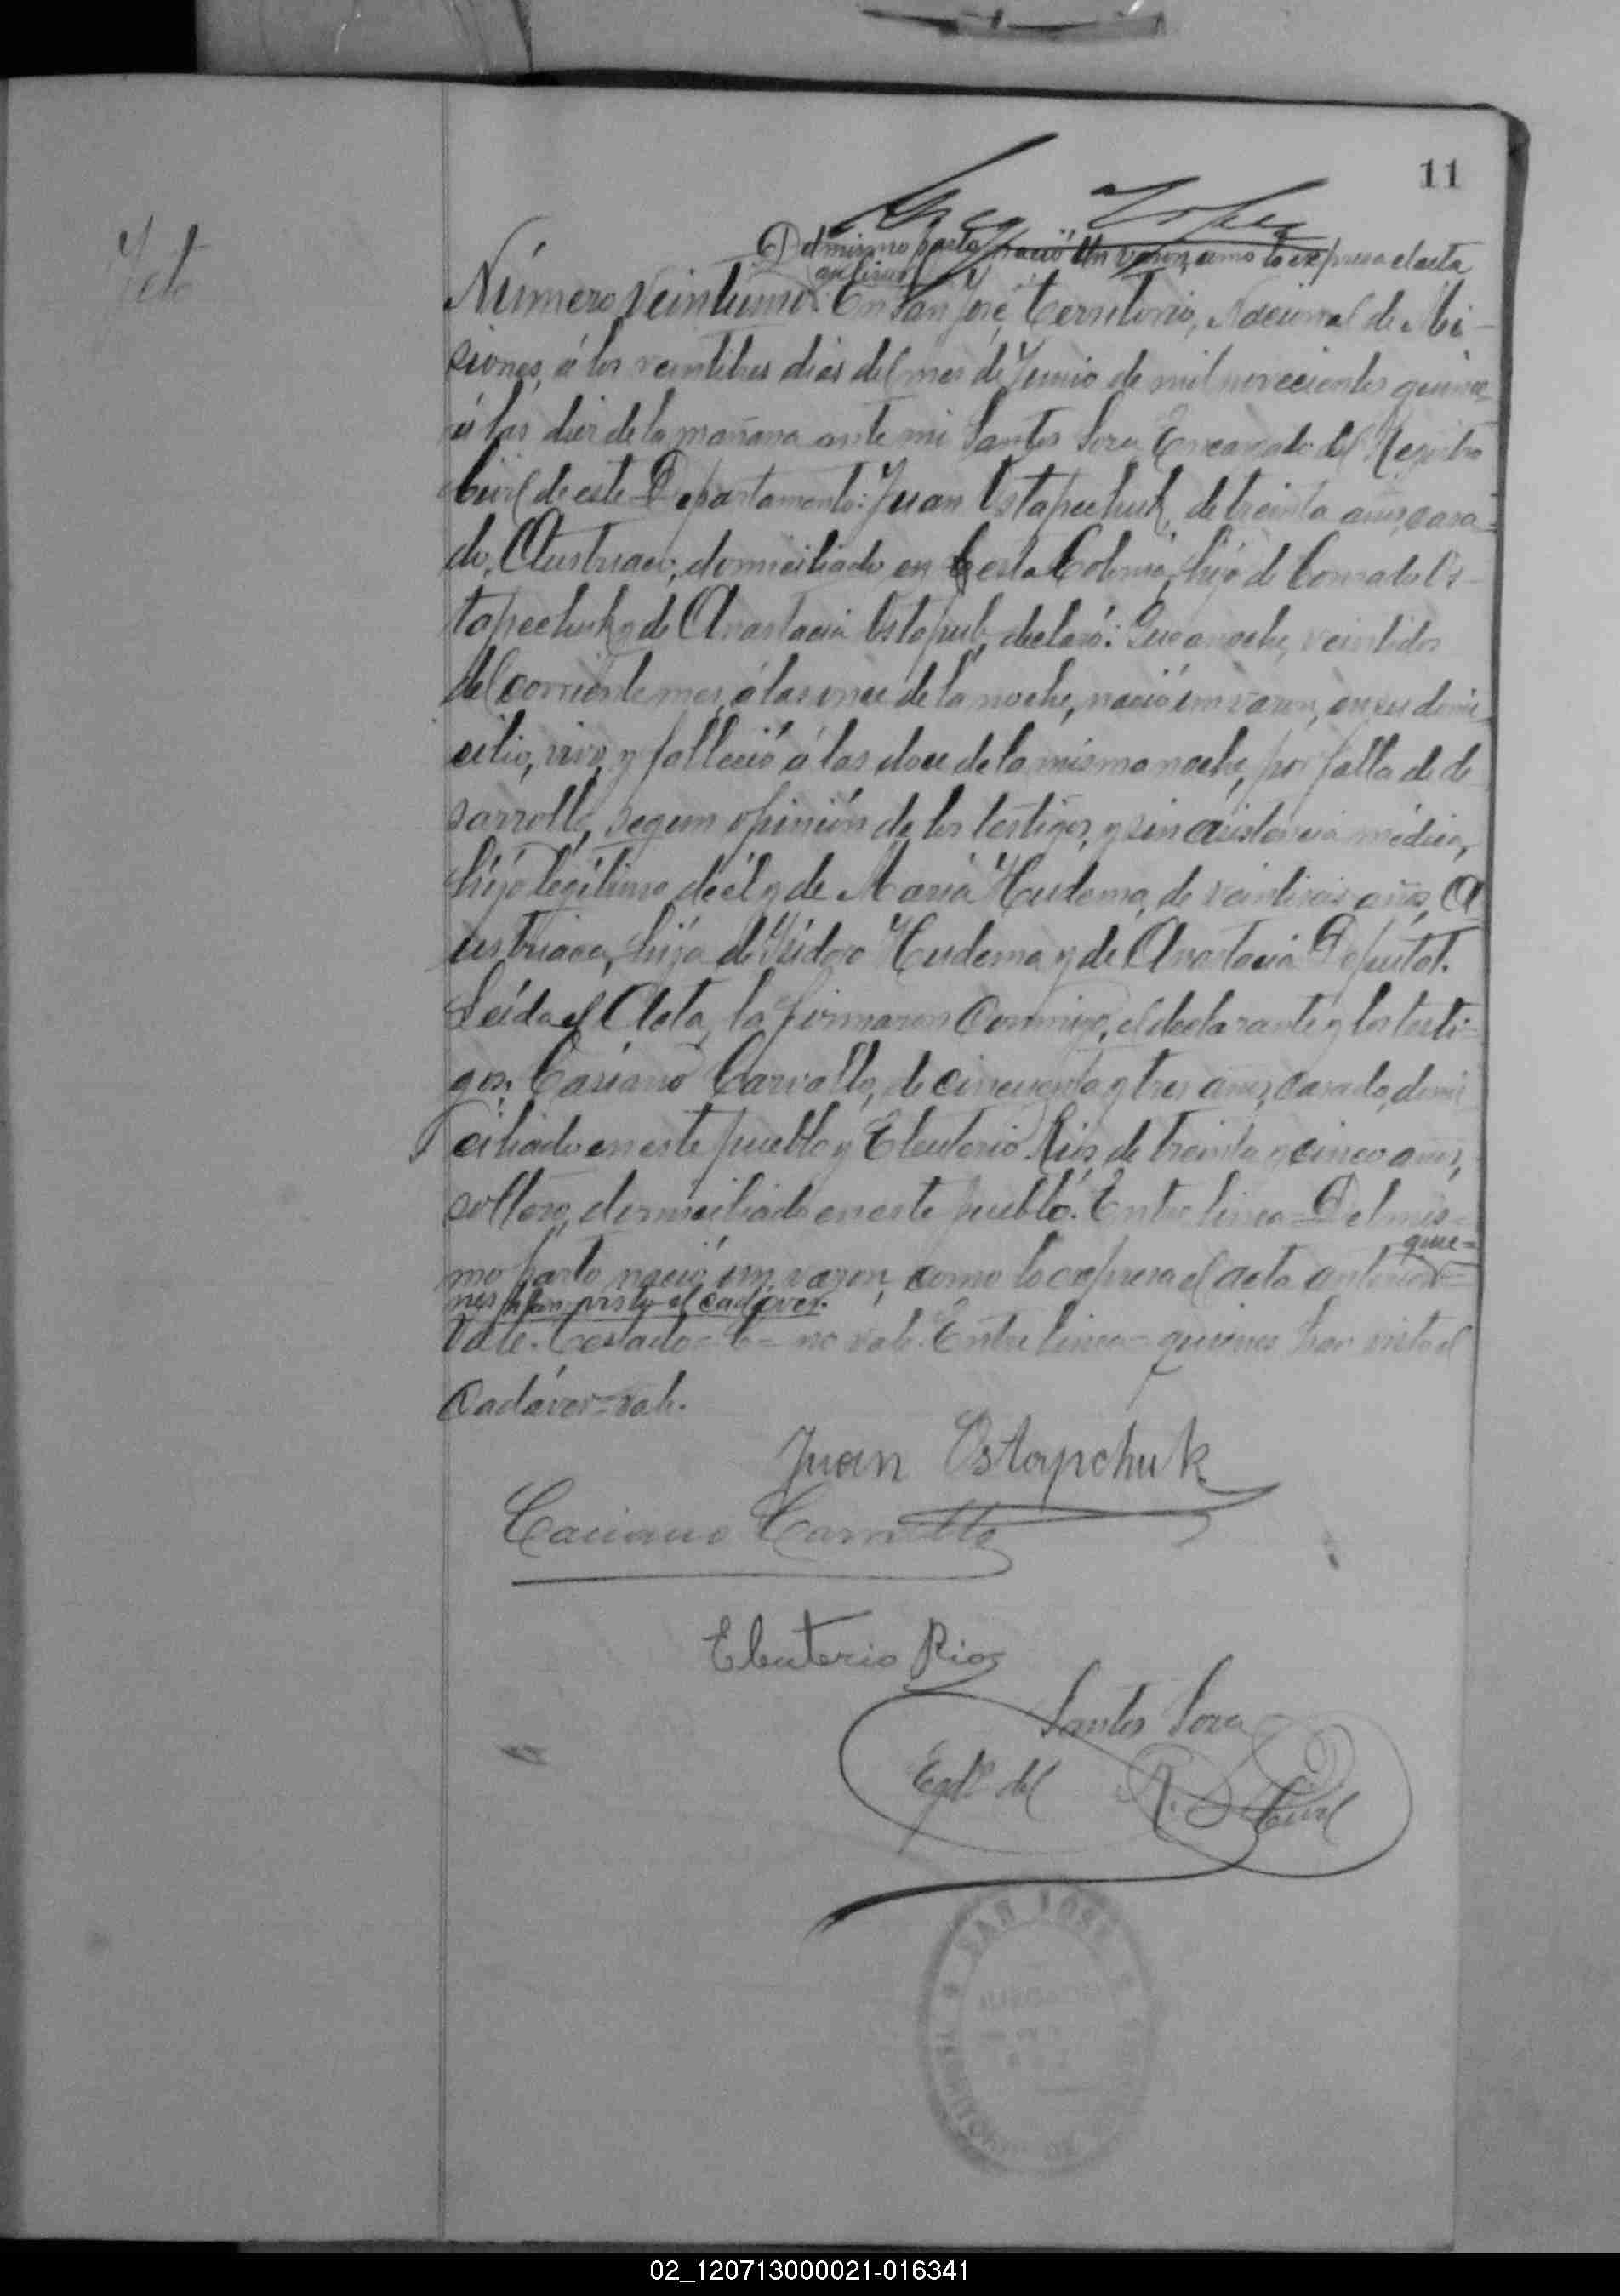 11
Feto
Del mismo parto nació un varon, como lo expresa el acta
anterior
Número veintiuno: En San José, Territorio, Nacional de Mi-
siones, á los veintitres dias del mes de Junio de mil novecientos quince,
á las diez de la mañana ante mi Santos Soza, Encargado del Registro
Civil de este Departamento: Juan Ostapechuk, de treinta años, casa-
do, Austriaco, domiciliado en C esta Colonia, hijo de Conrado Os-
tapechuk y de Anastacia Ostapub, declaró: Que anoche, veintidos
del corriente mes, á las once de la noche, nació un varon, en su domi-
cilio, vivo, y falleció á las doce de la misma noche, por falta de de
sarrollo, segun opinión de los testigos, y sin asistencia médica,
hijo legítimo de él y de María Hudema, de veintiseis años, A
ustriaca, hija de Isidoro Hudema y de Anastacia Deputat.
Leída el Acta, la firmaron conmigo, el declarante y los testi-
gos: Casiano Carvallo, de cincuenta y tres años, casado, domi
ciliado en este pueblo y Eleuterio Rios, de treinta y cinco años,
soltero, domiciliado en este pueblo. Entre linea = Del mis-
quie=
mo parto nació un varon, como lo expresa el acta anterior =
nes han visto el cadáver.
Vale. Testado = C = no vale. Entre linea = quienes han visto el
Cadáver = vale.
Juan Ostapchuk
Caciano Carvallo
Eleuterio Rios
Santos Soza
Egdo. del R. Civil
SAN JOSE
02_120713000021-016341